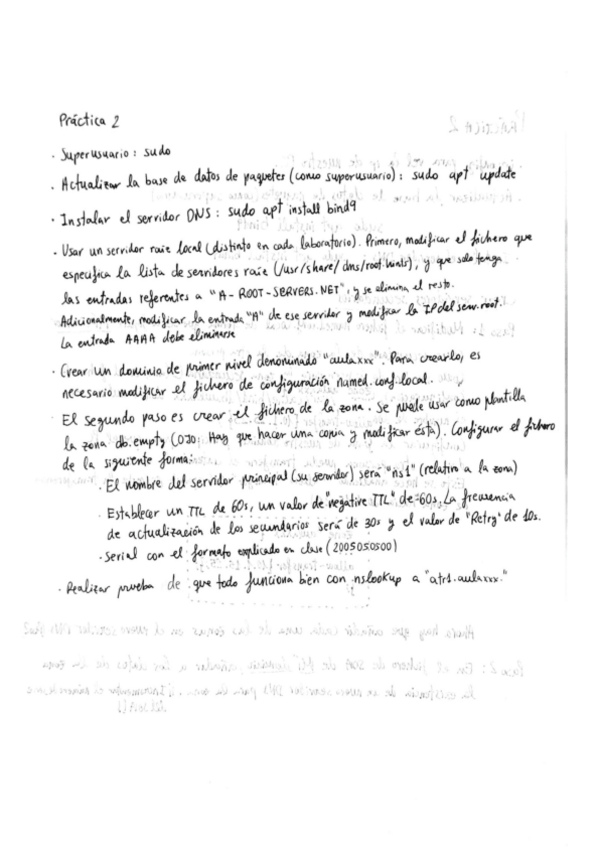 Práctica 2
· Superusuario: sudo
· Actualizar la base de datos de paquetes (como superusuario): sudo apt update
· Instalar el servidor DNS: sudo apt install bind9
· Usar un servidor raíz local (distinto en cada laboratorio). Primero, modificar el fichero que
especifica la lista de servidores raíz (/usr/share/dns/root.hints), y que solo tenga
las entradas referentes a "A-ROOT-SERVERS.NET", y se elimina el resto.
Adicionalmente, modificar la entrada "A" de ese servidor y modificar la IP del serv.root.
La entrada AAAA debe eliminarse
· Crear un dominio de primer nivel denominado "aulaxxx". Para crearlo, es
necesario modificar el fichero de configuración named.conf.local.
El segundo paso es crear el fichero de la zona. Se puede usar como plantilla
la zona db.empty (OJO: Hay que hacer una copia y modificar ésta). Configurar el fichero
de la siguiente forma:
· El nombre del servidor principal (su servidor) será "ns1" (relativo a la zona)
· Establecer un TTL de 60s, un valor de "negative TTL" de 60s. La frecuencia
de actualización de los secundarios será de 30s y el valor de "Retry" de 10s.
· Serial con el formato explicado en clase (2005050500)
· Realizar prueba de que todo funciona bien con nslookup a "atr1.aulaxxx."